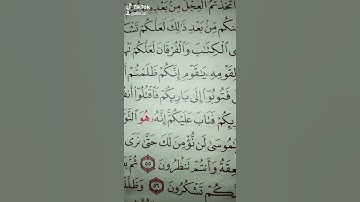 TikTok
ٱتَّخَذْتُمُ ٱلْعِجْلَ مِنۢ بَعْدِ
عَنكُم مِّنۢ بَعْدِ ذَٰلِكَ لَعَلَّكُمْ تَشْ
ٱلْكِتَٰبَ وَٱلْفُرْقَانَ لَعَلَّكُمْ تَهْ
لِقَوْمِهِۦ يَٰقَوْمِ إِنَّكُمْ ظَلَمْتُمْ
فَتُوبُوٓا۟ إِلَىٰ بَارِئِكُمْ فَٱقْتُلُوٓا۟ أَن
رِئِكُمْ فَتَابَ عَلَيْكُمْ إِنَّهُۥ هُوَ ٱلتَّوَّ
مُوسَىٰ لَن نُّؤْمِنَ لَكَ حَتَّىٰ نَرَى
عِقَةُ وَأَنتُمْ تَنظُرُونَ ٥٥ ثُمَّ بَ
كُمْ تَشْكُرُونَ ٥٦ وَظَلَّلْ